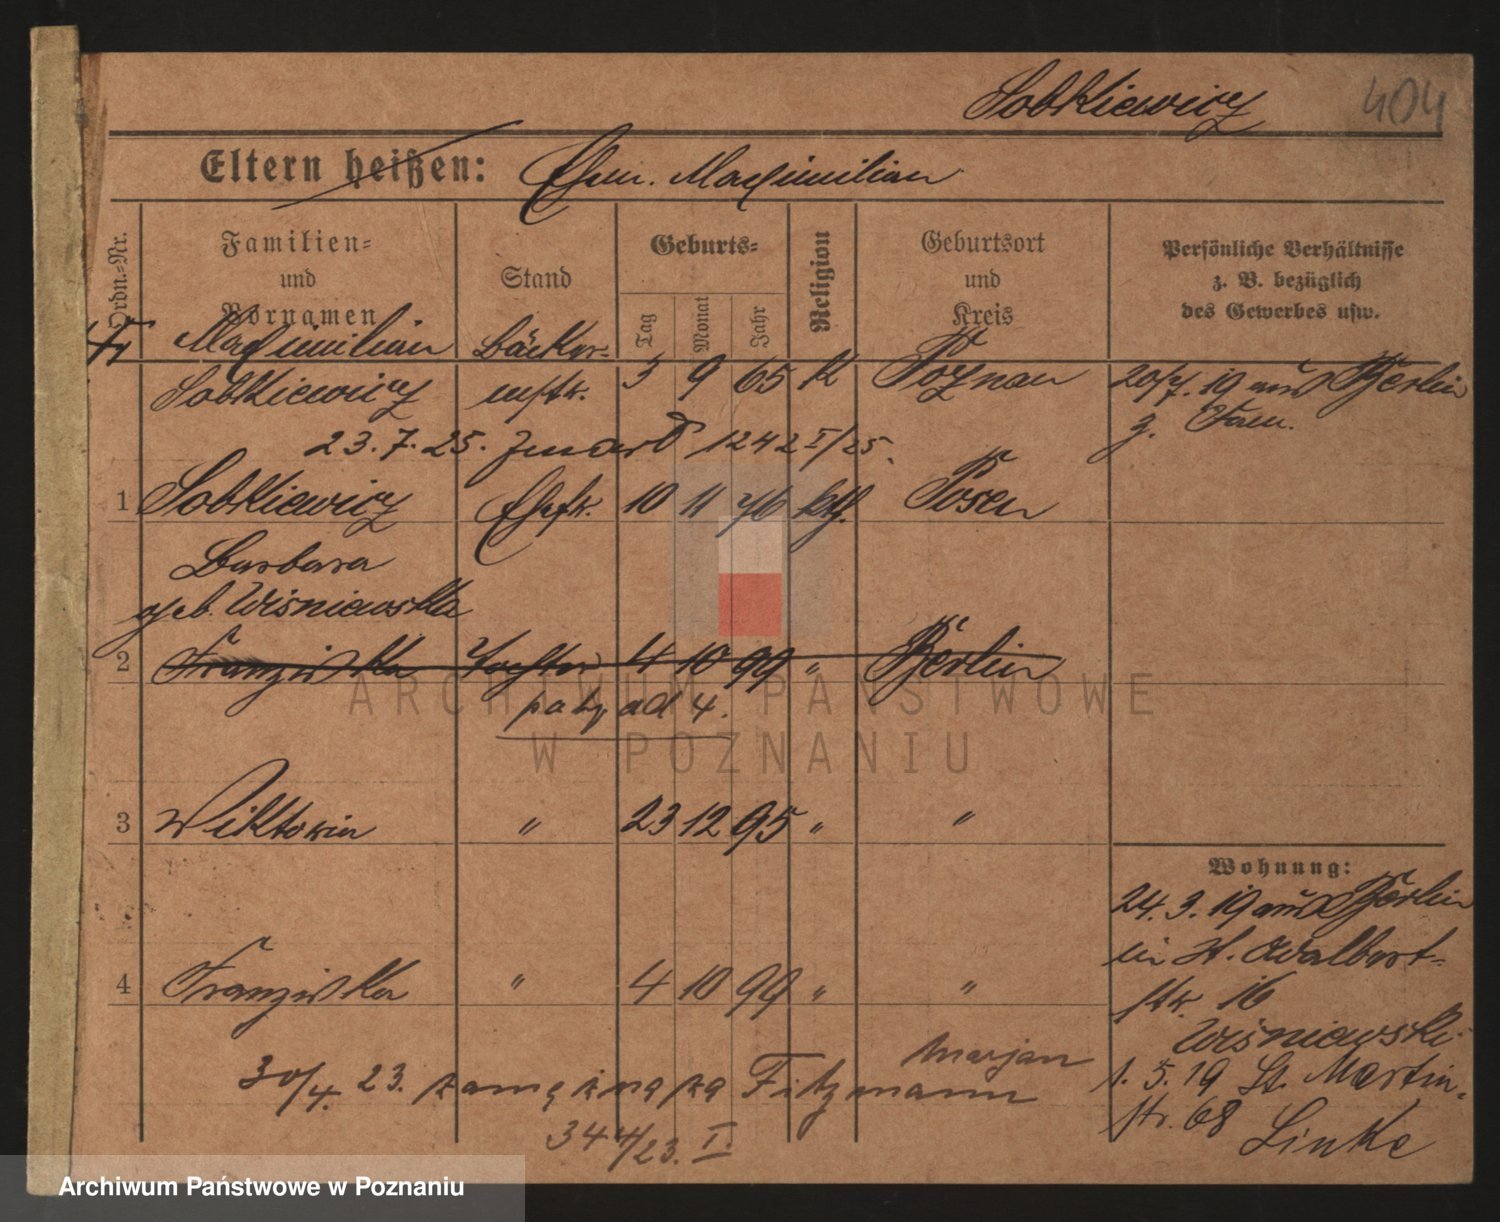 Sobkiewicz 404
Eltern heißen: Ehem. Maximilian
Ordn.-Nr. Familien- und Vornamen Stand Geburts- Tag Monat Jahr Religion Geburtsort und Kreis Persönliche Verhältnisse z. B. bezüglich des Gewerbes usw.
Maximilian Bäcker-
Sobkiewicz mstr. 3 9 65 K Poznan 20/7. 19 aus Berlin
z. Fam.
23. 7. 25. zmarł 1242 I/25.
1 Sobkiewicz Ehefr. 10 11 76 kth. Posen
Barbara
geb. Wisniewska
2 Franziska Tochter 4 10 99 " Berlin
patrz ad 4.
3 Wiktoria " 23 12 95 " "
Wohnung:
24. 3. 19 aus Berlin
in St. Adalbert-
4 Franziska " 4 10 99 " "
str. 16
Wisniewski
Marjan
30/4. 23. zamężna za Fitzmann
1. 5. 19 St. Martin-
str. 68
Linke
344/23. I.
ARCHIWUM PAŃSTWOWE
W POZNANIU
Archiwum Państwowe w Poznaniu